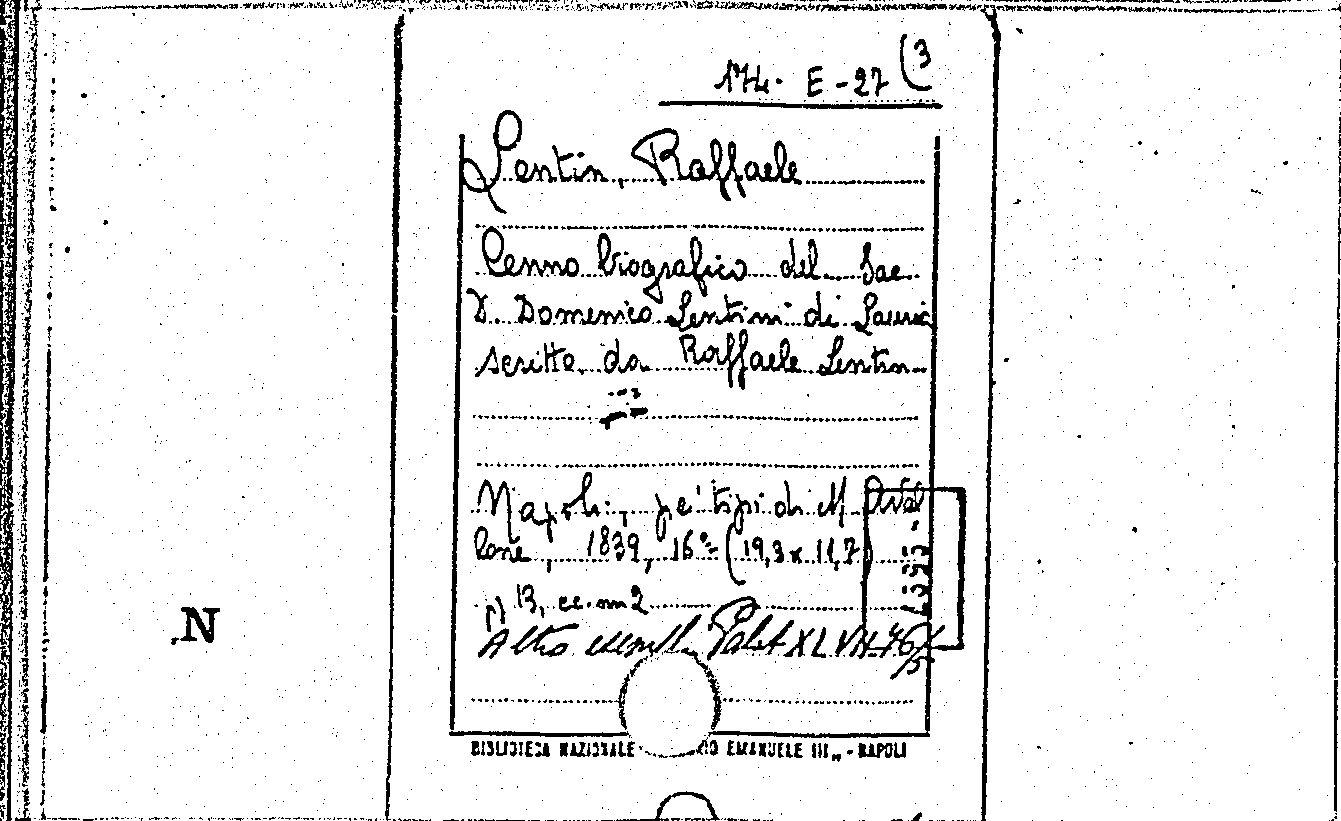 174. E-27 (3
Lentin, Raffaele
Cenno biografico del Sac.
D. Domenico Lentini di Lauria
scritto da Raffaele Lentin-
Napoli, pe' tipi di M. Avel
lone, 1839, 16° (19,3 x 11,7)
p. 13, cc. nn 2
Altro Palat XL VII 76
N
BIBLIOTECA NAZIONALE EMANUELE III„ - NAPOLI